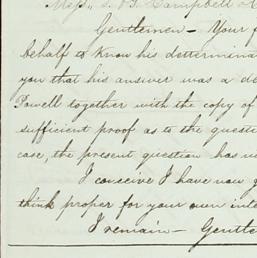 Mess,, S. & S. Campbell
Gentlemen — Your f
behalf to know his determina
you that his answer was a de
Powell together with the copy of
sufficient proof as to the questi
case, the present question has
I conceive I have now g
think proper for your own inte
I remain — Gentle